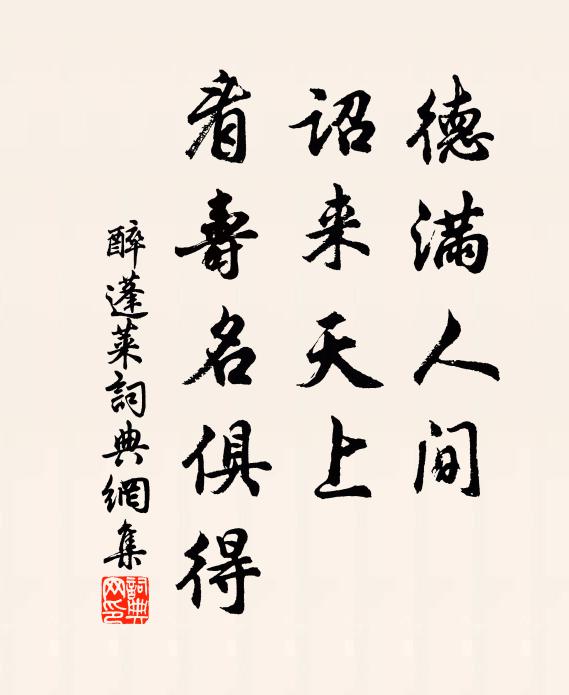 德满人间
诏来天上
看寿名俱得
醉蓬莱词典网集
词典网印